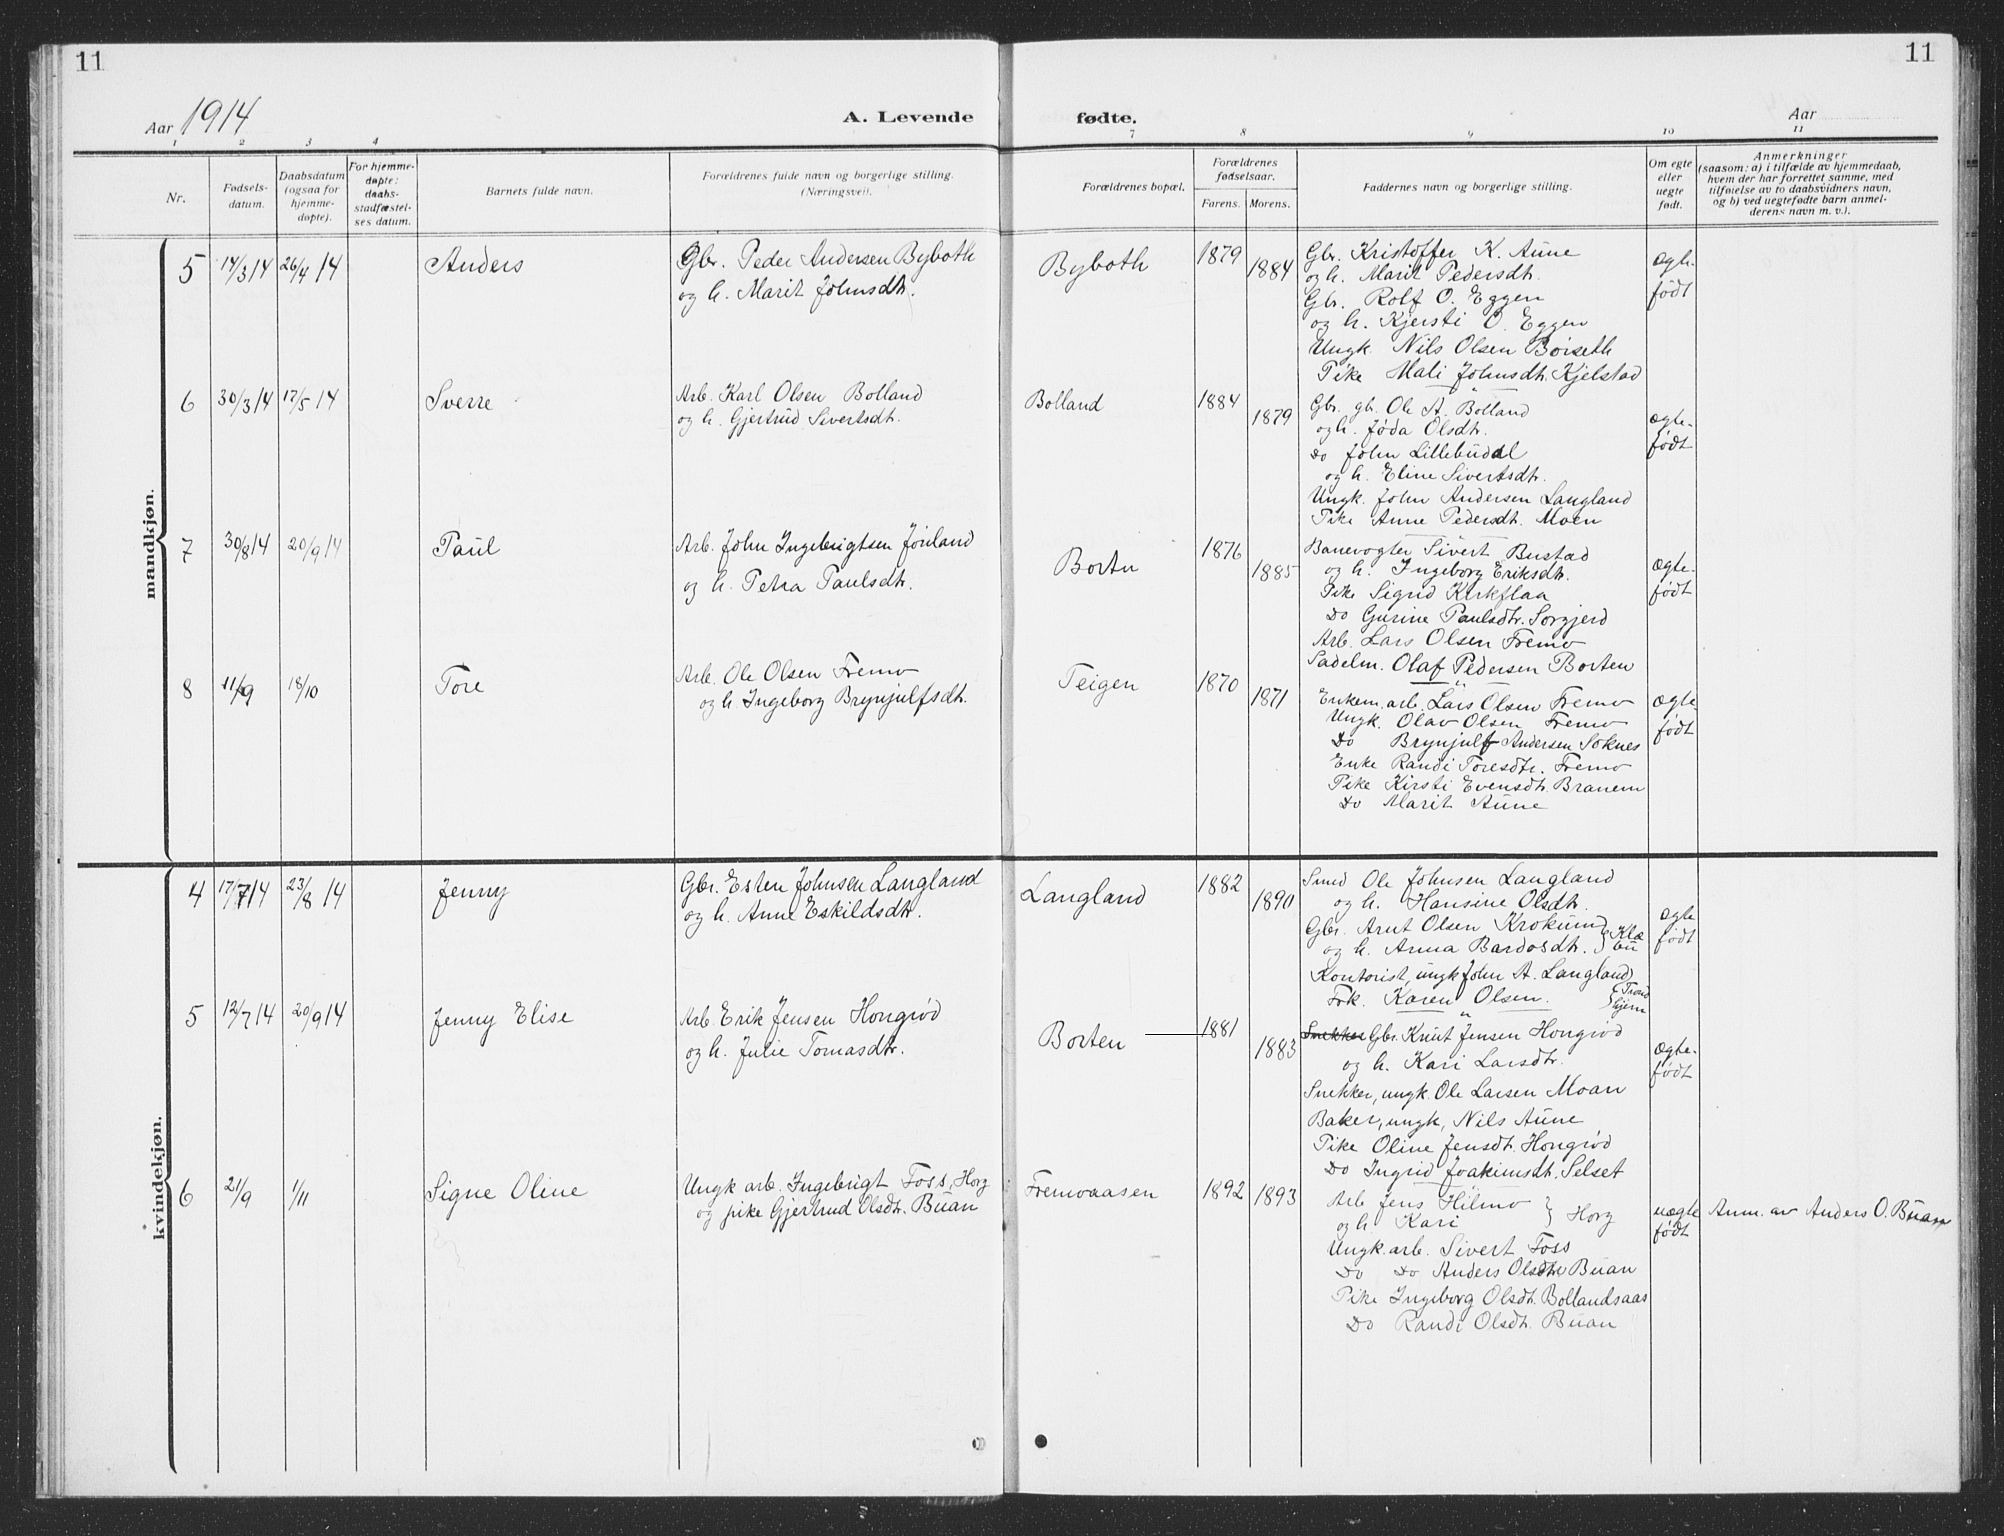 11
11
Aar 1914
A. Levende
fødte.
Aar
1 2 3 4
7 8 9 10 11
Nr.
Fødsels-
datum.
Daabsdatum
(ogsaa for
hjemme-
døpte).
For hjemme-
døpte:
daabs-
stadfæstel-
ses datum.
Barnets fulde navn.
Forældrenes fulde navn og borgerlige stilling.
(Næringsvei).
Forældrenes bopæl.
Forældrenes
fødselsaar.
Farens. Morens.
Faddernes navn og borgerlige stilling.
Om egte
eller
uegte
født.
Anmerkninger
(saasom: a) i tilfælde av hjemmedaab,
hvem der har forrettet samme, med
tilføielse av to daabsvidners navn,
og b) ved uegtefødte barn anmel-
derens navn m. v.).
mandkjøn.
5 14/3 14 26/4 14 Anders
Gbr. Peder Andersen Byboth
og h. Marit Johnsdtr.
Byboth 1879 1884
Gbr. Kristoffer K. Aune
og h. Marit Pedersdt.
Gbr. Rolf O. Eggen
og h. Kjersti O. Eggen
Ungk. Nils Olsen Børseth
Pike Mali Johnsdt. Kjelstad
ægte-
født
6 30/3 14 17/5 14 Sverre
Arb. Karl Olsen Bolland
og h. Gjertrud Sivertsdt.
Bolland 1884 1879
Gbr. gb. Ole A. Bolland
og h. Jøda Olsdt.
Do John Lillebudal
og h. Eline Sivertsdt.
Ungk. John Andersen Langland
Pike Anne Pedersdt. Moen
ægte-
født
7 30/8 14 20/9 14 Paul
Arb. John Ingebrigtsen Jøriland
og h. Petra Paulsdtr.
Borten 1876 1885
Banevogter Sivert Bustad
og h. Ingeborg Eriksdt.
Pike Sigrid Kirkflaa
Do Gurine Paulsdtr. Sorgjerd
Arb. Lars Olsen Fremo
Sadelm. Olaf Pedersen Borten
ægte-
født
8 11/9 18/10 Tore
Arb. Ole Olsen Fremo
og h Ingeborg Brynjulfsdt.
Teigen 1870 1871
Enkem. arb. Lars Olsen Fremo
Ungk. Olav Olsen Fremo
Do Brynjulf Andersen Soknes
Enke Randi Toresdtr. Fremo
Pike Kirsti Evensdt. Branem
Do Marit Aune
ægte-
født
kvindekjøn.
4 17/7 14 23/8 14 Jenny
Gbr. Esten Johnsen Langland
og h. Anne Eskildsdtr.
Langland 1882 1890
Smed Ole Johnsen Langland
og h. Hansine Olsdt.
Gbr. Arnt Olsen Krokum
og h. Anna Bardosdt. } Klæ
bu
Kontorist, ungk John A. Langland
Frk. Karen Olsen. } Trond
hjem
ægte
født
5 12/7 14 20/9 14 Jenny Elise
Arb. Erik Jensen Hongrød
og h. Julie Tomasdtr.
Borten 1881 1883
Snekker Gbr. Knut Jensen Hongrød
og h. Kari Larsdtr.
Snekker, ungk. Ole Larsen Moan
Baker, ungk, Nils Aune
Pike Oline Jensdt. Hongrød
Do Ingrid Joakimsdt. Selset
ægte-
født
6 21/9 1/11 Signe Oline
Ungk arb. Ingebrigt Foss, Horg
og pike Gjertrud Olsdt. Buan
Fremoaasen 1892 1893
Arb Jens Hilmo
og h. Kari } Horg
Ungk. arb. Sivert Foss
Do Do Anders Olsdtr Buan
Pike Ingeborg Olsdt. Bollandsaas
Do Randi Olsdt. Buan
uægte
født
Anm. av Anders O. Buan